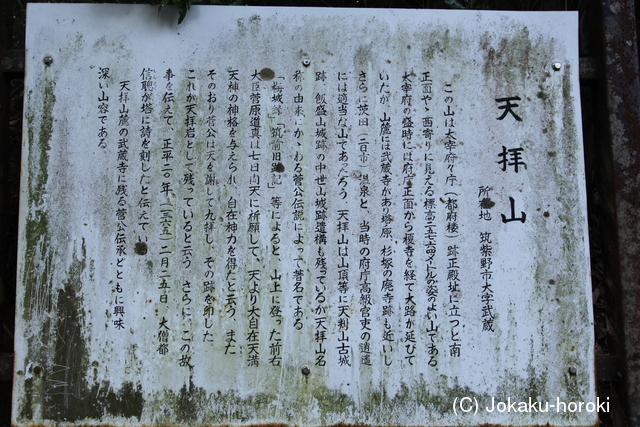 天拝山
所在地 筑紫野市大字武蔵
この山は太宰府々庁(都府楼)跡正殿址に立つと南
正面やゝ西寄りに見える標高二五七・六四メートルの姿のよい山である
太宰府の盛時には府庁正面から榎寺を経て大路が延びて
いたが 山麓には武蔵寺があり塔原 杉塚の廃寺跡も近いし
さらに茨田(二日市)温泉と、当時の府庁高級官吏の逍遥
には適当な山であったろう 天拝山は山頂等に天判山古城
跡 飯盛山城跡の中世山城跡遺構も残っているが天拝山名
称の由来にかゝわる菅公伝説によって著名である
「梅城 筑前旧 」等によると 山上に登った前右
大臣菅原道真は七日間天に祈願して、天より大自在天満
天神の神格を与えられ 自在神力を得たと云う また
そのおり菅公は天を謝して九拝し、その跡を印した
これが天拝岩として残っていると云う さらに、この故
事を伝えて 正平二〇年(一三六五)二月二五日 大僧都
信聡が塔に詩を刻したと伝えてい
天拝山麓の武蔵寺に残る菅公伝承とともに興味
深い山容である
(C) Jokaku-horoki